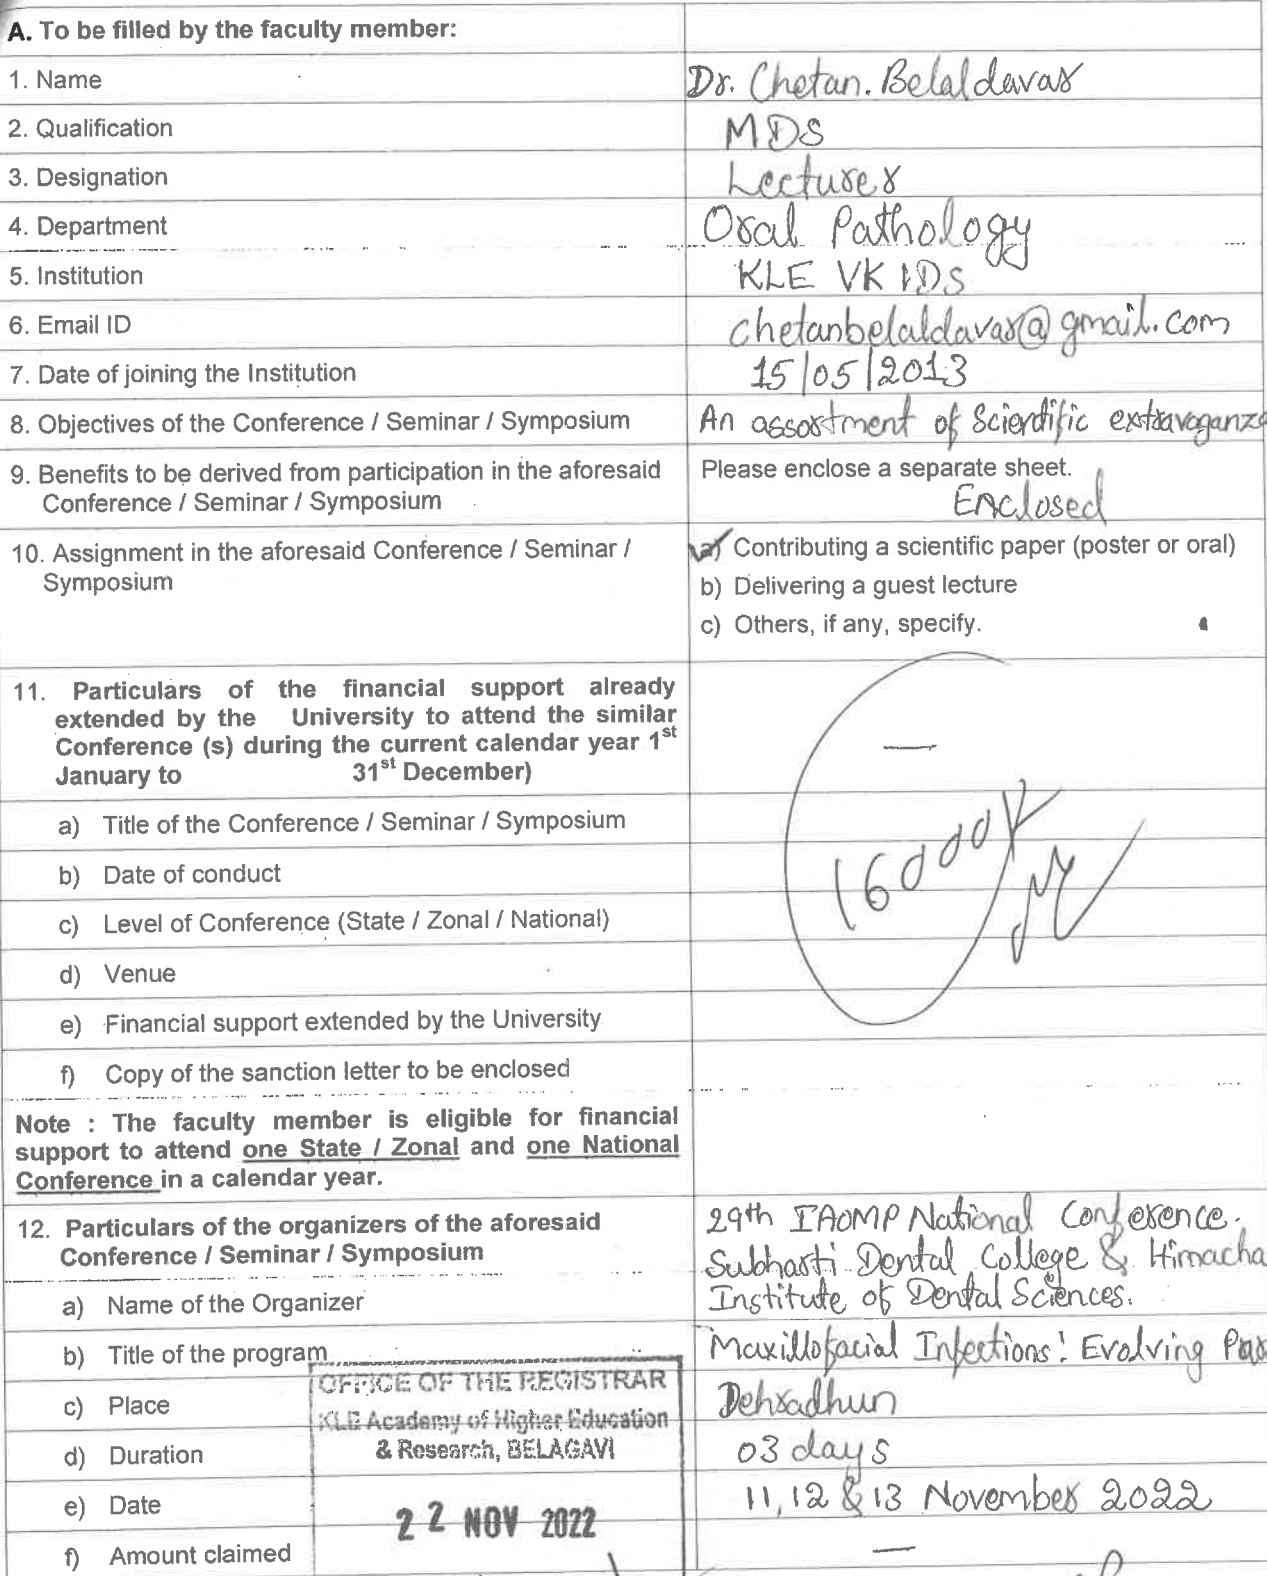 A. To be filled by the faculty member:
1. Name Dr. Chetan. Belaldavar
2. Qualification MDS
3. Designation Lecturer
4. Department Oral Pathology
5. Institution KLE VK IDS
6. Email ID chetanbelaldavar@gmail.com
7. Date of joining the Institution 15/05/2013
8. Objectives of the Conference / Seminar / Symposium An assortment of Scientific extravaganza
9. Benefits to be derived from participation in the aforesaid Please enclose a separate sheet.
Conference / Seminar / Symposium Enclosed
10. Assignment in the aforesaid Conference / Seminar / a) Contributing a scientific paper (poster or oral)
Symposium b) Delivering a guest lecture
c) Others, if any, specify.
11. Particulars of the financial support already
extended by the University to attend the similar
Conference (s) during the current calendar year 1st —
January to 31st December)
a) Title of the Conference / Seminar / Symposium
b) Date of conduct 16000
c) Level of Conference (State / Zonal / National)
d) Venue
e) Financial support extended by the University
f) Copy of the sanction letter to be enclosed
Note : The faculty member is eligible for financial
support to attend one State / Zonal and one National
Conference in a calendar year.
12. Particulars of the organizers of the aforesaid 29th IAOMP National Conference.
Conference / Seminar / Symposium Subharti Dental College & Himacha
a) Name of the Organizer Institute of Dental Sciences.
b) Title of the program Maxillofacial Infections: Evolving Par
OFFICE OF THE REGISTRAR
c) Place Dehradhun
KLE Academy of Higher Education
& Research, BELAGAVI
d) Duration 03 days
e) Date 11, 12 & 13 November 2022
22 NOV 2022
f) Amount claimed —